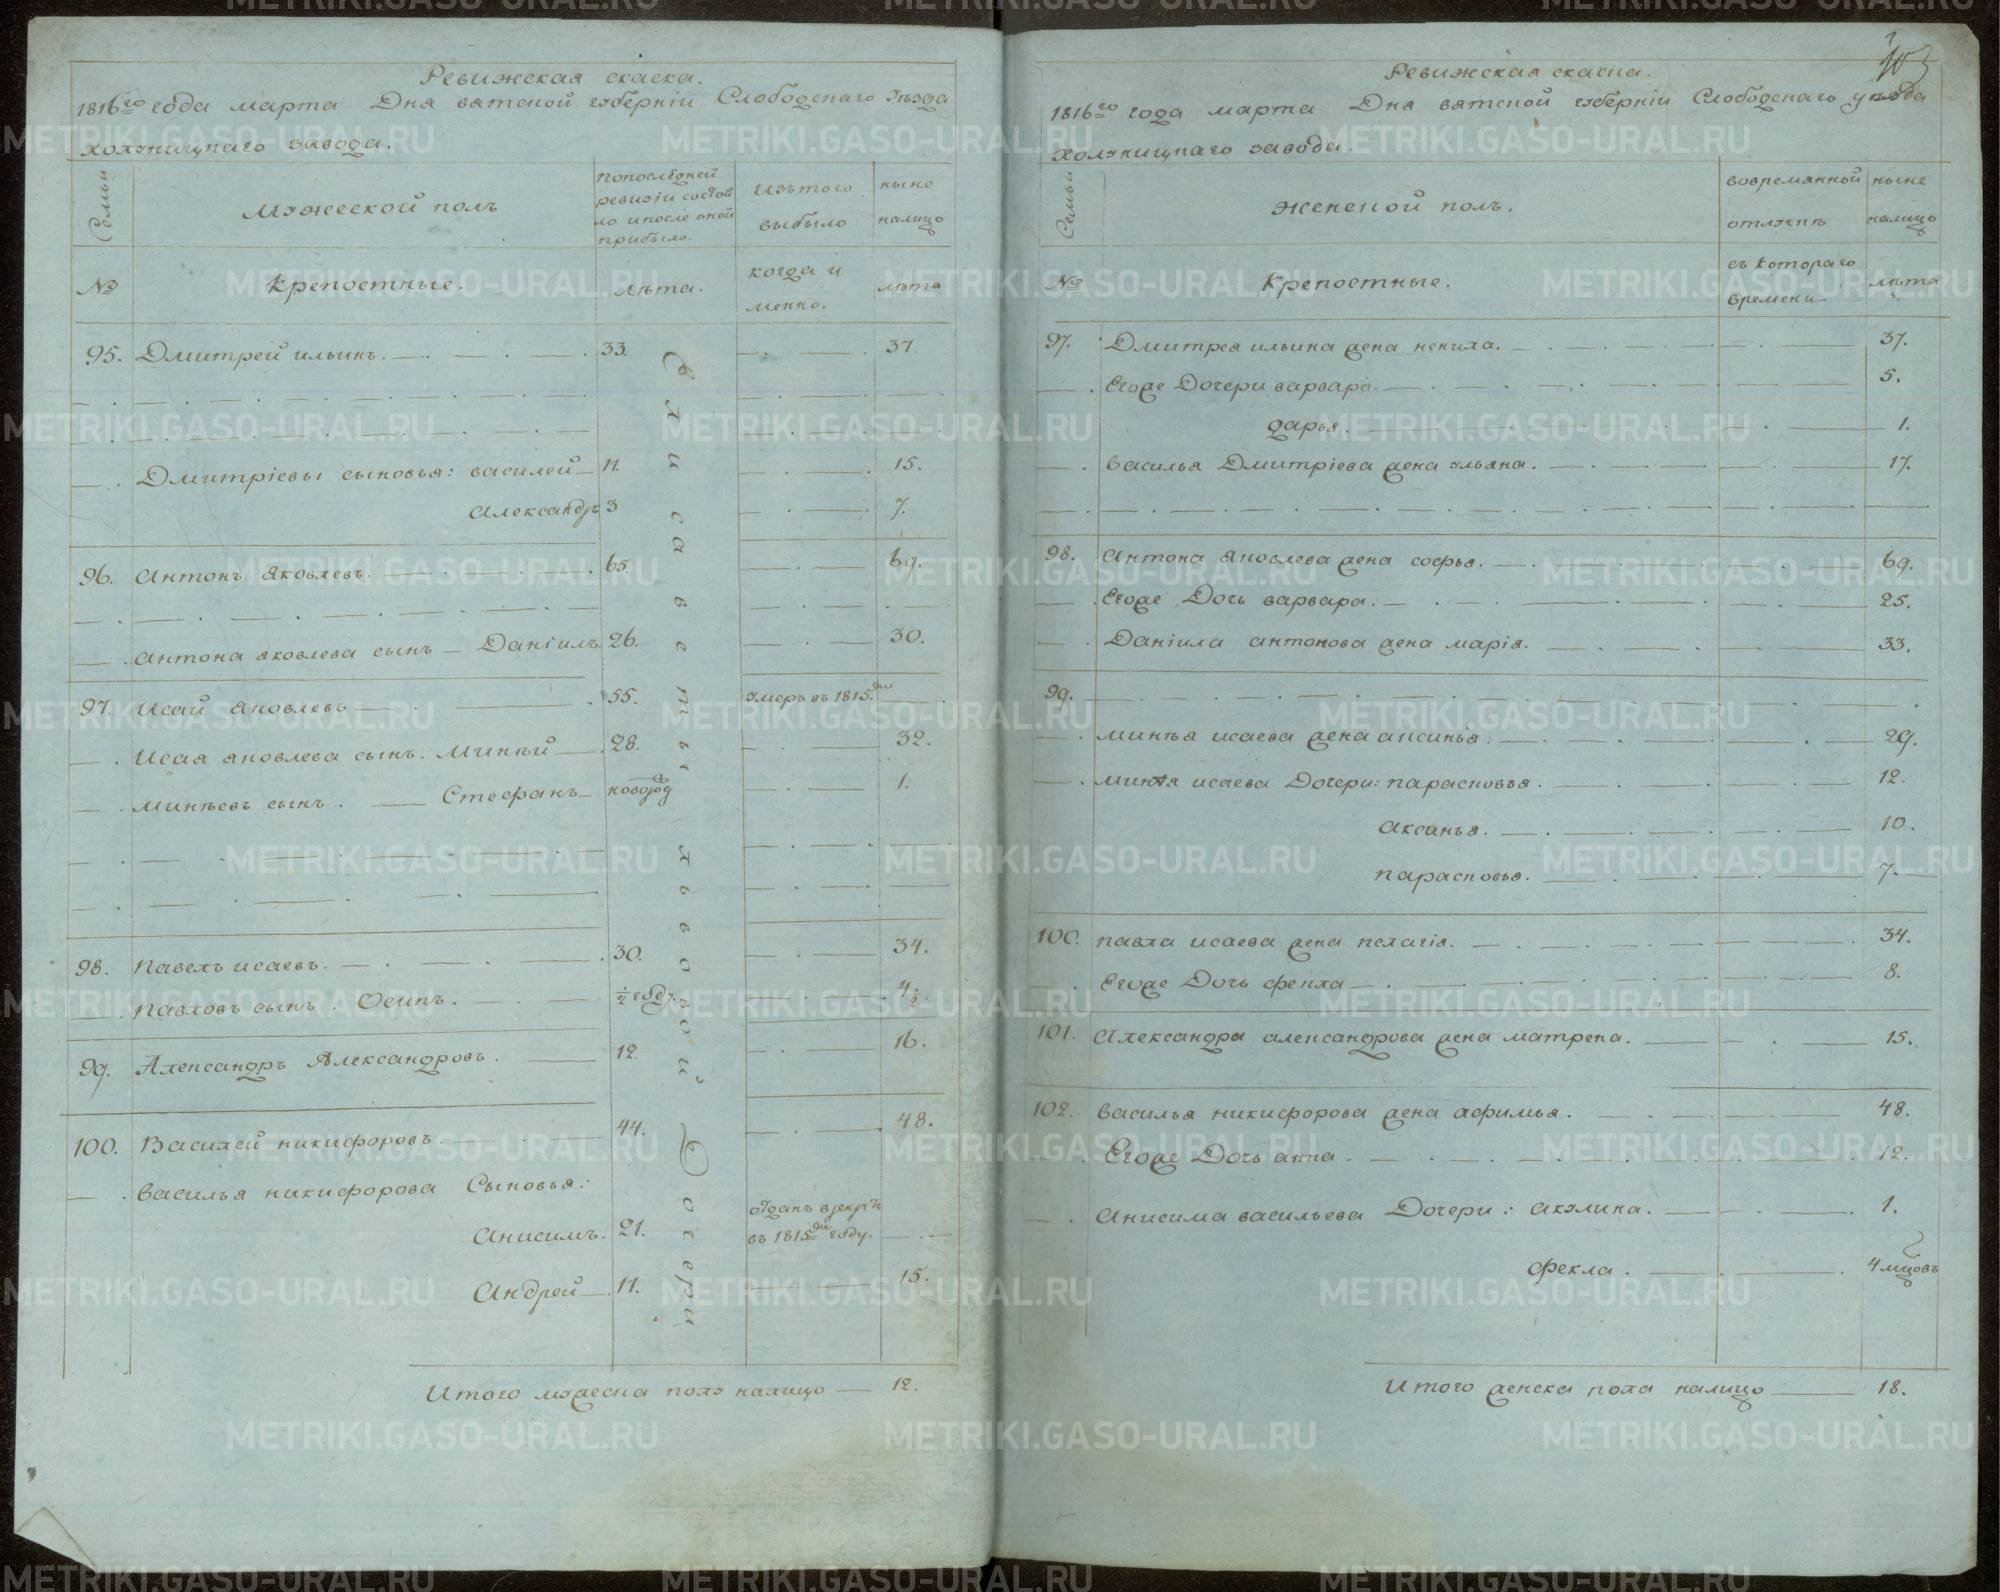 Ревижская скаска.
1816го года марта Дня вятской губерніи Слободскаго уѣзда
холуницкаго завода.
Семьи
Мужеской полъ
попослѣдней ревизіи состояло и после оной прибыло.
Изътого выбыло
ныне налицо
№
Крепостные.
лѣта.
когда и менно.
лѣта
95. Дмитрей ильинъ. 33. 37.
Дмитріевы сыновья: василей 11. 15.
Александръ 3 7.
96. Антонъ Яковлевъ. 65. 69.
Антона яковлева сынъ Даніилъ 26. 30.
97. Исай Яковлевъ 55. умеръ въ 1815.
Исая яковлева сынъ. Минѣй 28. 32.
Минѣевъ сынъ. Стефанъ новород 1.
98. Павелъ исаевъ. 30. 34.
Павловъ сынъ. Осипъ. ½ году. 4½.
99. Александръ Александровъ. 12. 16.
100. Василей никифоровъ. 44. 48.
Василья никифорова Сыновья:
Анисимъ. 21. отданъ врекруты въ 1815 году.
Андрей 11. 15.
Итого мужеска полу налицо 12.
103
Ревижская скаска.
1816го года марта Дня вятской губерніи Слободскаго уѣзда
холуницкаго завода.
Семьи
Женской полъ.
вовремянной отлучкѣ
ныне налицо
№
Крепостные.
съ котораго времени
лѣта
97. Дмитрея ильина жена некила. 37.
Егоже Дочери варвара. 5.
дарья. 1.
Василья Дмитріева жена ульяна. 17.
98. Антона Яковлева жена софья. 69.
Егоже Дочь варвара. 25.
Даніила антонова жена марія. 33.
99.
Минѣя исаева жена аксинья. 29.
Минѣя исаева Дочери: парасковья. 12.
Аксинья. 10.
парасковья. 7.
100. павла исаева жена пелагія. 34.
Егоже Дочь фекла 8.
101. Александра александрова жена матрена. 15.
102. Василья никифорова жена афимья. 48.
Егоже Дочь анна. 12.
Анисима васильева Дочери: акулина. 1.
Фекла. 4 мцовъ
Итого женска пола налицо 18.